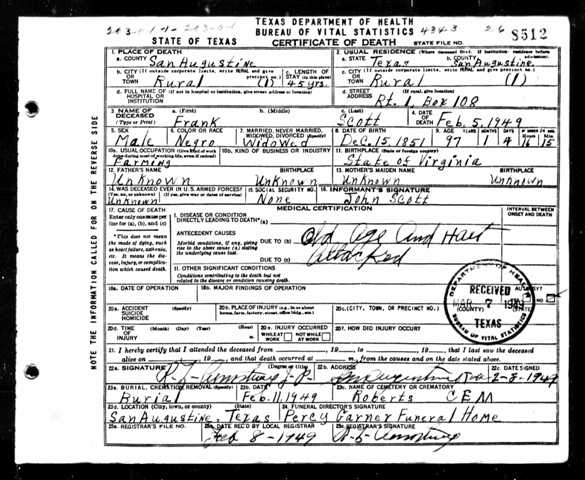 TEXAS DEPARTMENT OF HEALTH
BUREAU OF VITAL STATISTICS 434-3
STATE OF TEXAS CERTIFICATE OF DEATH STATE FILE NO. 8512
1. PLACE OF DEATH 2. USUAL RESIDENCE
a. COUNTY San Augustine a. STATE Texas b. COUNTY San Augustine
b. CITY (If outside corporate limits, write RURAL and give precinct no.) LENGTH OF STAY (in this place) c. CITY (If outside corporate limits, write RURAL and give precinct no.)
Rural (1) 45 yrs. Rural (1)
d. FULL NAME OF (If not in hospital or institution, give street address or location) HOSPITAL OR INSTITUTION d. STREET ADDRESS Rt. 1, Box 108
3. NAME OF DECEASED (Type or Print) a. (First) b. (Middle) c. (Last) 4. DATE OF DEATH
Frank Scott Feb. 5, 1949
5. SEX 6. COLOR OR RACE 7. MARRIED, NEVER MARRIED, WIDOWED, DIVORCED (Specify) 8. DATE OF BIRTH 9. AGE YEARS MONTHS DAYS
Male Negro Widowed Dec. 15, 1851 97 1 4 16 15
10a. USUAL OCCUPATION 10b. KIND OF BUSINESS OR INDUSTRY 11. BIRTHPLACE (State or foreign country)
Farming State of Virginia
12. FATHER'S NAME BIRTHPLACE 13. MOTHER'S MAIDEN NAME BIRTHPLACE
Unknown Unknown Unknown Unknown
14. WAS DECEASED EVER IN U.S. ARMED FORCES? 15. SOCIAL SECURITY NO. 16. INFORMANT'S SIGNATURE
Unknown None John Scott
17. CAUSE OF DEATH MEDICAL CERTIFICATION INTERVAL BETWEEN ONSET AND DEATH
Enter only one cause per line for (a), (b), and (c)
I. DISEASE OR CONDITION DIRECTLY LEADING TO DEATH* (a)
*This does not mean the mode of dying, such as heart failure, asthenia, etc. It means the disease, injury, or complication which caused death.
ANTECEDENT CAUSES
Morbid conditions, if any, giving rise to the above cause (a) stating the underlying cause last.
DUE TO (b) Old Age And Hart
DUE TO (c) attacked
II. OTHER SIGNIFICANT CONDITIONS
Conditions contributing to the death but not related to the disease or condition causing death.
18a. DATE OF OPERATION 18b. MAJOR FINDINGS OF OPERATION
DEPARTMENT OF HEALTH
RECEIVED
MAR 7 1949
TEXAS
BUREAU OF VITAL STATISTICS
20a. ACCIDENT SUICIDE HOMICIDE 20b. PLACE OF INJURY 20c. (CITY, TOWN, OR PRECINCT NO.) (COUNTY)
20d. TIME OF INJURY (Month) (Day) (Year) (Hour) 20e. INJURY OCCURRED WHILE AT WORK NOT WHILE AT WORK 20f. HOW DID INJURY OCCUR?
21. I hereby certify that I attended the deceased from 19 , to 19 , that I last saw the deceased
alive on 19 , and that death occurred at m., from the causes and on the date stated above.
22a. SIGNATURE (Degree or title) 22b. ADDRESS 22c. DATE SIGNED
J.P.
23a. BURIAL, CREMATION, REMOVAL (Specify) 23b. DATE 23c. NAME OF CEMETERY OR CREMATORY
Burial Feb. 11, 1949 Roberts CEM
23d. LOCATION (City, town, or county) (State) 24. FUNERAL DIRECTOR'S SIGNATURE
San Augustine, Texas Percy Garner Funeral Home
25a. REGISTRAR'S FILE NO. 25b. DATE REC'D BY LOCAL REGISTRAR 25c. REGISTRAR'S SIGNATURE
Feb 8-1949
NOTE THE INFORMATION CALLED FOR ON THE REVERSE SIDE